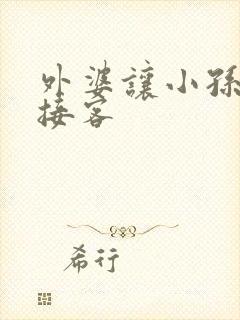 外婆讓小孫
接客
希行